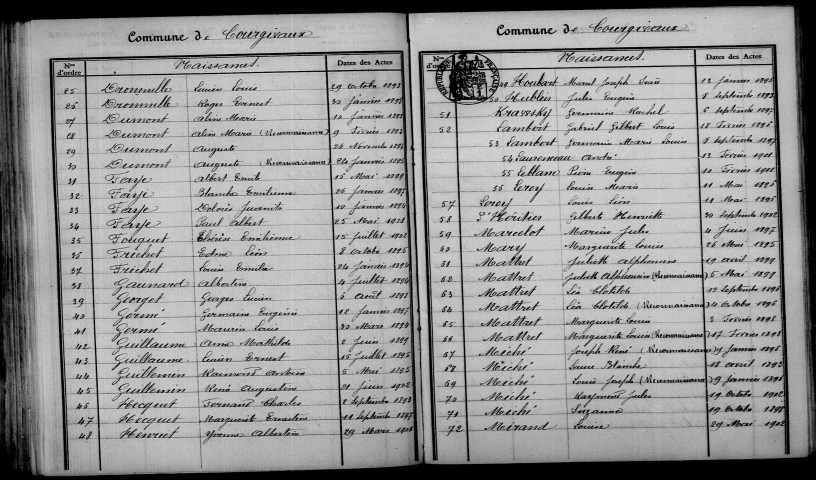 Commune de Courgivaux
Nos d'ordre Naissances. Dates des Actes
25 Drommelle Lucien Louis 29 Octobre 1893
26 Drommelle Roger Ernest 30 Janvier
27 Dumont Alice Marie 10 Janvier 1895
28 Dumont Alice Marie (Reconnaissance) 9 Février 1895
29 Dumont Auguste 26 Novembre
30 Dumont Auguste (Reconnaissance) 24 Janvier
31 Faye Albert Emile 12 Mai 1899
32 Faye Blanche Emilienne 26 Janvier 1897
33 Faye Dolorès Juanita 10 Janvier 1894
34 Faye Paul Albert 25 Mai
35 Fouquet Thérèse Emilienne 15 Juillet
36 Frichet Edme Léon 8 Octobre 1895
37 Frichet Louise Emilie 24 Janvier 1894
38 Gaunard Albertine 4 Juillet 1894
39 Georget Georges Lucien 5 Août
40 Germé Germaine Eugénie 12 Janvier 1897
41 Germé Maurice Louis 30 Mars 1894
42 Guillaume Anne Mathilde 2 Juin 1899
43 Guillaume Lucien Ernest 16 Juillet 1895
44 Guillemin Raimond Antoine 5 Mai 1895
45 Guillemin René Augustin 21 Juin 1902
46 Hocquet Fernand Charles 2 Septembre 1893
47 Hocquet Marguerite Ernestine 11 Septembre 1897
48 Henriet Yvonne Albertine 29 Mars
Commune de Courgivaux
Nos d'ordre Naissances. Dates des Actes
49 Houbart Marcel Joseph 12 Janvier 1895
50 Hublier Jules Eugène 8 Septembre 1893
51 Kravesky Germaine Rachel 6 Septembre 1897
52 Lambert Gabriel Gilbert Louis 18 Février
53 Lambert Germaine Marie Louise 9 Septembre 1897
54 André 13 Février 1901
55 Leblanc Pierre Eugène 10 Février 1901
56 Leroy Louise Marie 11 Mai 1895
57 Leroy Louis Léon 11 Mai 1895
58 L'Héritier Gilberte Henriette 30 Septembre 1902
59 Marcelot Marius Jules 4 Juin 1897
60 Mary Marguerite Louise 26 Mai 1895
61 Mattret Juliette Alphonsine 19 Avril 1899
62 Mattret Juliette Alphonsine (Reconnaissance) 5 Mai 1899
63 Mattret Léa Clotilde 12 Septembre 1896
64 Mattret Léa Clotilde (Reconnaissance) 4 Octobre 1896
65 Mattret Marguerite Louise 2 Février 1898
66 Mattret Marguerite Louise (Reconnaissance) 17 Février 1898
67 Méiché Joseph René (Reconnaissance) 29 Janvier 1896
68 Méiché Laure Blanche 18 Avril 1893
69 Méiché Louis Joseph (Reconnaissance) 29 Janvier 1896
70 Méiché Raymond Jules 19 Octobre 1902
71 Méiché Suzanne 19 Octobre 1898
72 Mérand Louise 29 Mai 1902